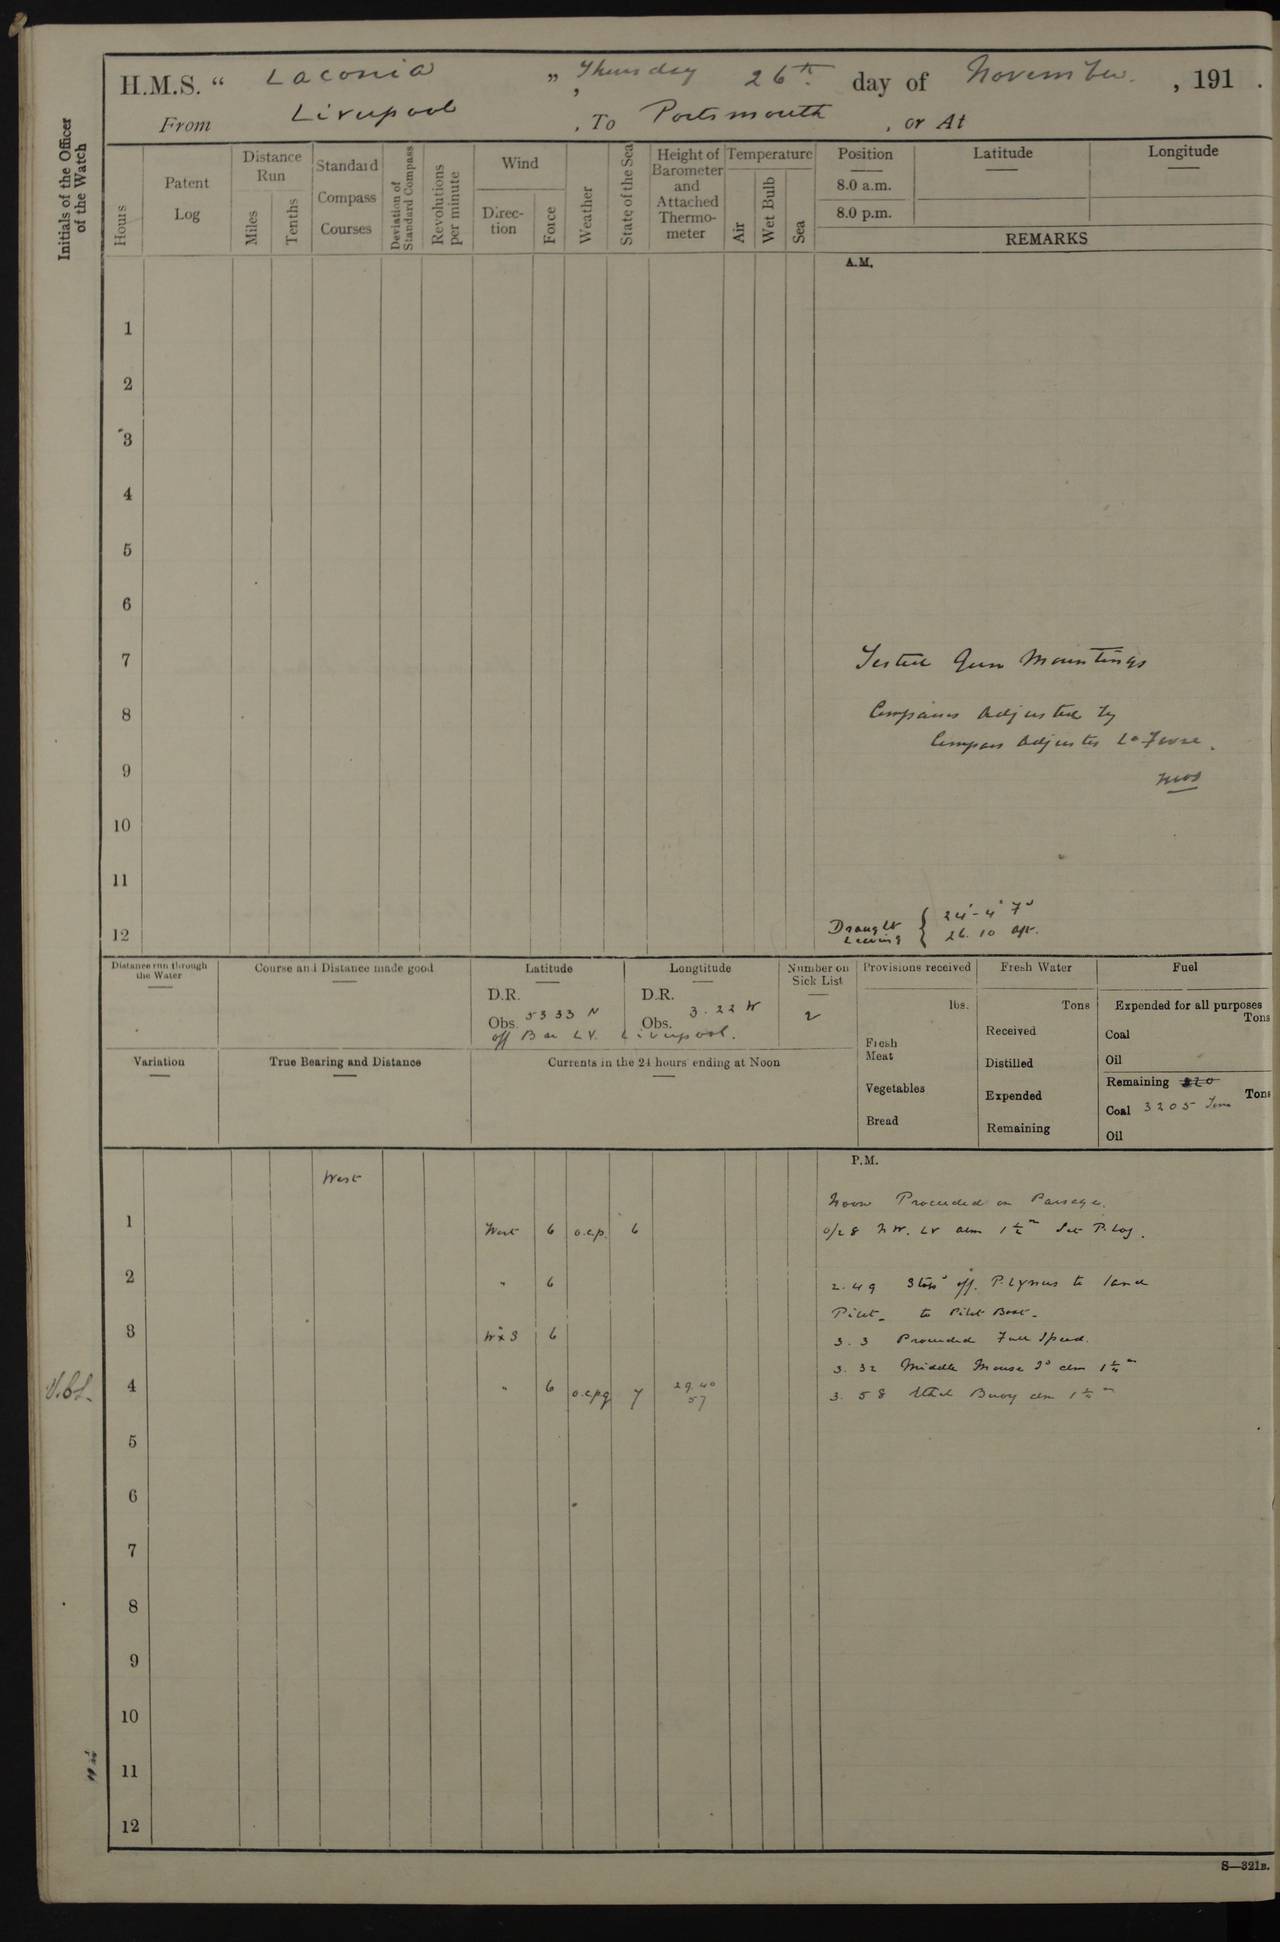 H.M.S. “ Laconia ”, Thursday 26th day of November. , 191 .
From Liverpool , To Portsmouth , or At
Initials of the Officer of the Watch
Hours
Patent Log
Distance Run
Miles
Tenths
Standard Compass Courses
Deviation of Standard Compass
Revolutions per minute
Wind
Direc- tion
Force
Weather
State of the Sea
Height of Barometer and Attached Thermo- meter
Temperature
Air
Wet Bulb
Sea
Position
Latitude
Longitude
8.0 a.m.
8.0 p.m.
REMARKS
A.M.
1
2
3
4
5
6
7 Tested Gun Mountings
8 Compasses Adjusted by
Compass Adjuster
9
10
11
Draught Leaving { 24'-4" Fd
12 26. 10 aft.
Distance run through the Water
Course and Distance made good
Latitude
D.R.
Obs. 53 33 N
Longtitude
D.R.
Obs. 3. 22 W
off Bar L.V. Liverpool.
Number on Sick List
2
Provisions received
lbs.
Fresh Meat
Vegetables
Bread
Fresh Water
Tons
Received
Distilled
Expended
Remaining
Fuel
Expended for all purposes
Tons
Coal
Oil
Remaining 320
Tons
Coal 3205 Tons
Oil
Variation
True Bearing and Distance
Currents in the 24 hours ending at Noon
P.M.
West
Noon Proceeded on Passage.
1 West 6 o.c.p. 6 0/28 N.W. LV abm 1½m Set P. Log.
2 " 6 2. 49 Stopd off P. Lynus to land
Pilot - to Pilot Boat -
3 WxS 6 3. 3 Proceeded Full Speed.
3. 32 Middle Mouse Id abm 1¼m
4 " 6 o.c.p.q 7 29.40 57 3. 58 Ethel Buoy abm 1½m
5
6
7
8
9
10
11
12
S—321B.